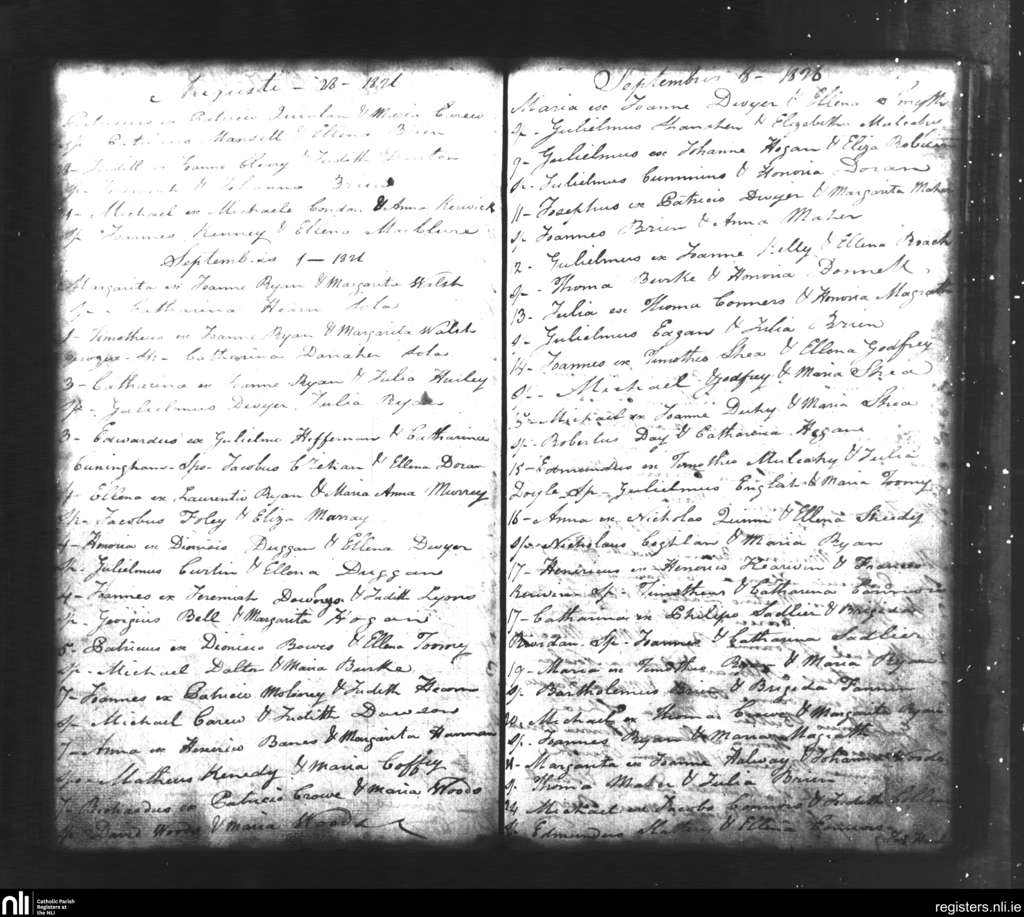 28 - 1826
Patricius ex Patricio Quinlan & Maria Carew
Sp. Patricius Mansell & Ellena Brien
Judith ex Joanne Cleary & Judith
& Johanna Brien
Michael ex Michaele Condon & Anna Renwick
Sp. Joannes Kenney & Ellena McClure
Septembris 1 - 1826
Margarita ex Joanne Ryan & Margarita Welsh
Catharina Hearn Sola
1- Timotheus ex Joanne Ryan & Margarita Walsh
Sp. Catharina Danaher Sola
3- Catharina ex Joanne Ryan & Julia Hurley
Sp- Gulielmus Dwyer, Julia Ryan
3- Edwardus ex Gulielmo Heffernan & Catharina
Cuningham - Spo- Jacobus & Ellena Doran
4- Ellena ex Laurentio Ryan & Maria Anna Murrey
Sp- Jacobus Foley & Eliza Marray
4- Honoria ex Dionisio Duggan & Ellena Dwyer
Sp. Gulielmus Curtin & Ellena Duggan
4- Joannes ex Jeremiah & Judith Lyons
Sp. Georgius Bell & Margarita Hogan
5- Patricius ex Dionicio Bowes & Ellena Toomy
Sp- Michael Dalton & Maria Burke
7- Joannes ex Patricio Moloney & Judith Hearn
Sp Michael Carew & Judith Dawson
7- Anna ex Henerico Banes & Margarita Hannan
Spo- Matheus Kenedy & Maria Coffey
7. Richardus ex Patricio Crowe & Maria Woods
Sp. David Woods & Maria Woods
Septembris 8 - 1826
Maria ex Joanne Dwyer & Ellena Smyth
Sp. Gulielmus Shanahan & Elizabetha Mulcahy
9- Gulielmus ex Johanne Hogan & Eliza Robinson
Sp. Julielmus Cummins & Honoria Doran
11- Josephus ex Patricio Dwyer & Margarita Maher
Sp. Joannes Brien & Anna Maher
2- Gulielmus ex Joanne Kelly & Ellena Roach
Sp- Thoma Burke & Honoria Donnell
13- Julia ex Thoma Conners & Honoria Magrath
Sp- Gulielmus Eagan & Julia Brien
14- Joannes ex Timotheo Shea & Ellena Godfrey
Michael Godfrey & Maria Shea
15- Michael ex Joanne Duhy & Maria Shea
Sp. Robertus Day & Catharina Hogan
15- Edmundus ex Timotheo Mulcahy & Julia
Doyle - Sp- Gulielmus English & Maria Toomy
16- Anna ex Nicholao Quinn & Ellena Sheedy
Spo- Nicholaus Coghlan & Maria Ryan
17- Henericus ex Henerico Kearwin & Frances
Sp- Timotheus & Catharina Connors
17- Catharina ex Philipo Sadlier & Brigida
Riordan. Sp- Joannes & Catharina Sadlier
19- Maria ex Timotheo Ryan & Maria Ryan
Sp Bartholemus Brien & Brigida
Michael ex Thoma Crowe & Margarita Ryan
Sp. Joannes Ryan & Maria Magrath
Margarita ex Joanne Halway & Johanna Woods
Thoma Maher & Julia Brien
24 Michael ex Jacobo Connors & Judith
Edmundus & Ellena Connors
nli Catholic Parish Registers at the NLI
registers.nli.ie